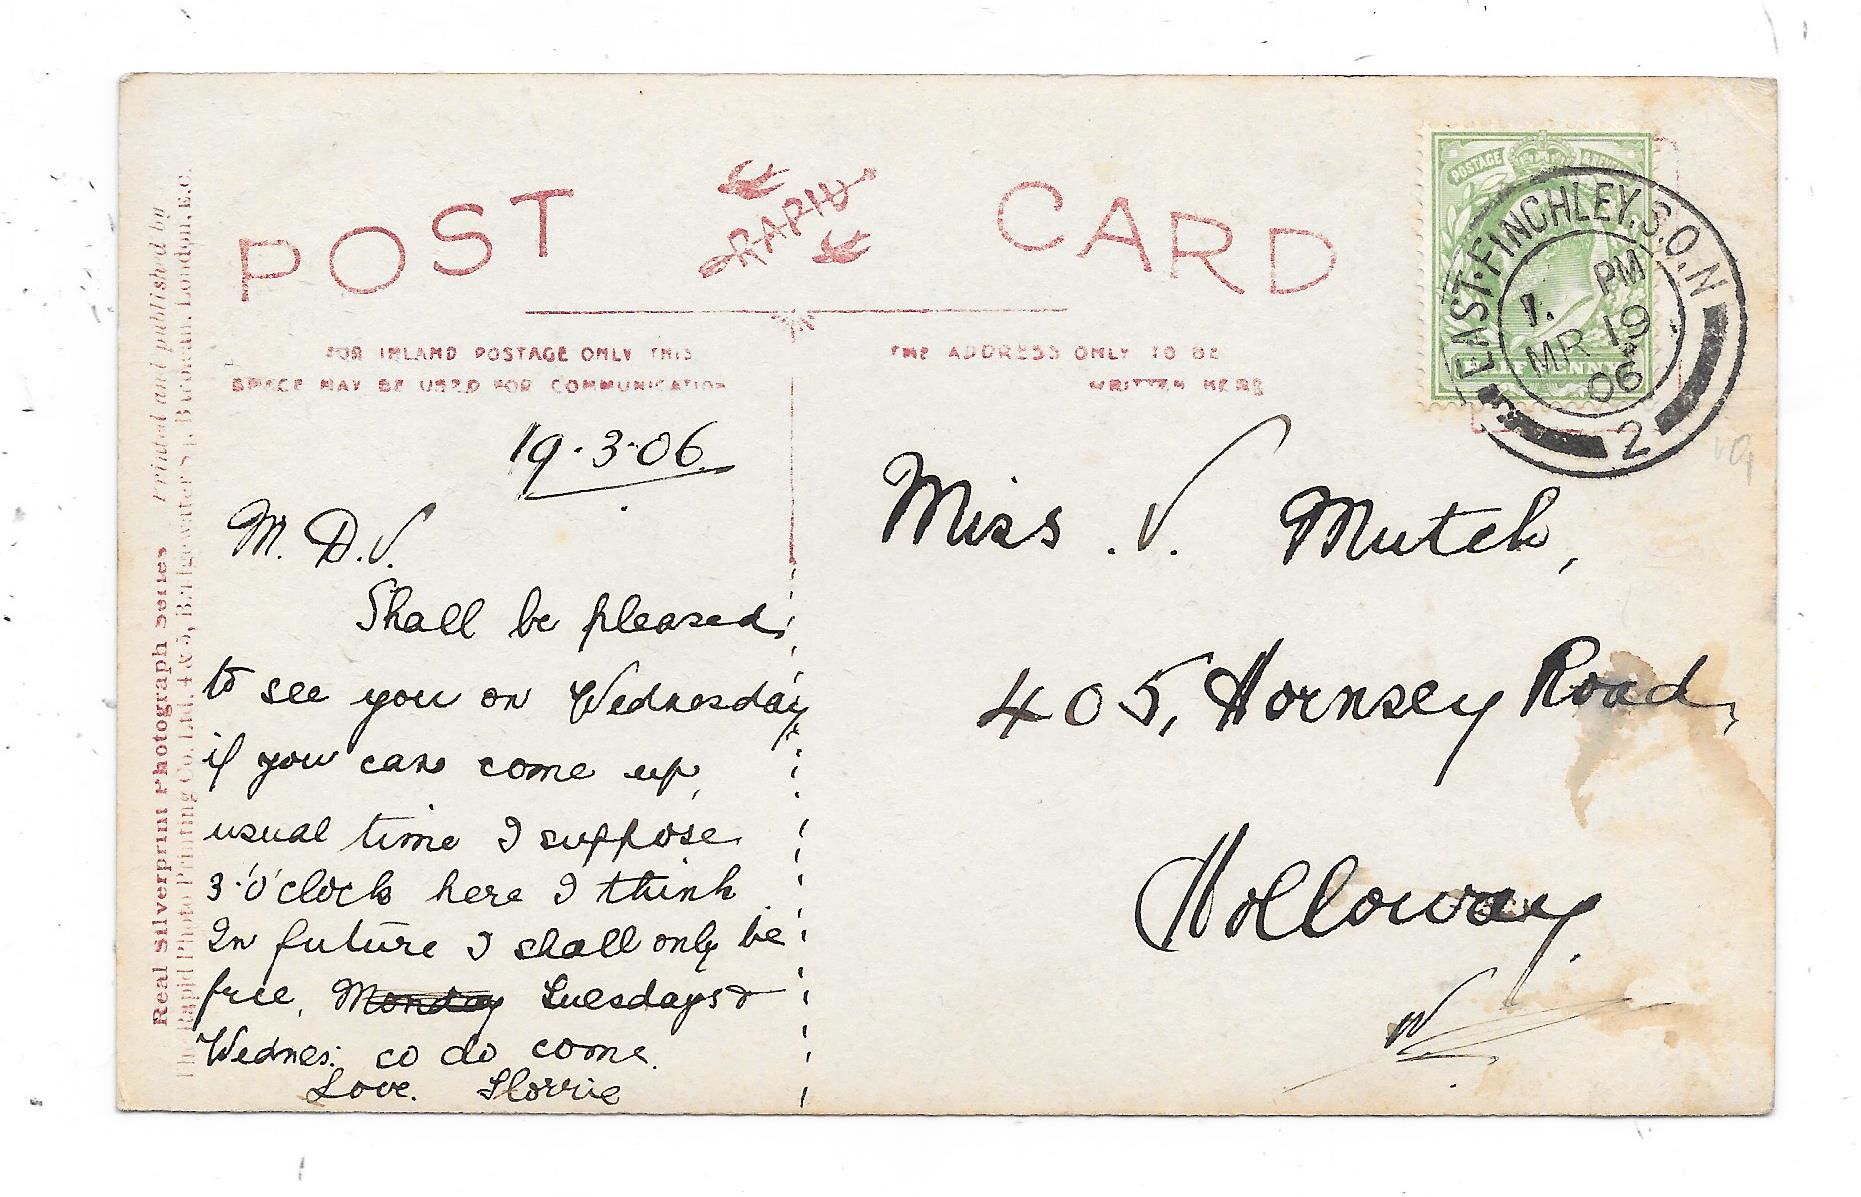 POST RAPID CARD
FOR INLAND POSTAGE ONLY THIS
SPACE MAY BE USED FOR COMMUNICATION
THE ADDRESS ONLY TO BE
WRITTEN HERE
19.3.06
M. D. V.
Shall be pleased
to see you on Wednesday
if you can come up,
usual time I suppose
3 o'clock here I think
In future I shall only be
free, Monday Tuesdays &
Wednes: so do come.
Love. Florrie
Miss. V. Mutch,
405, Hornsey Road,
Holloway.
N
POSTAGE & REVENUE
HALFPENNY
EAST-FINCHLEY.S.O.N
1. PM
MR 19
06
2
Real Silverprint Photograph Series Printed and published by
The Rapid Photo Printing Co. Ltd., 4 & 5, Bridgewater Sq., Barbican, London, E.C.